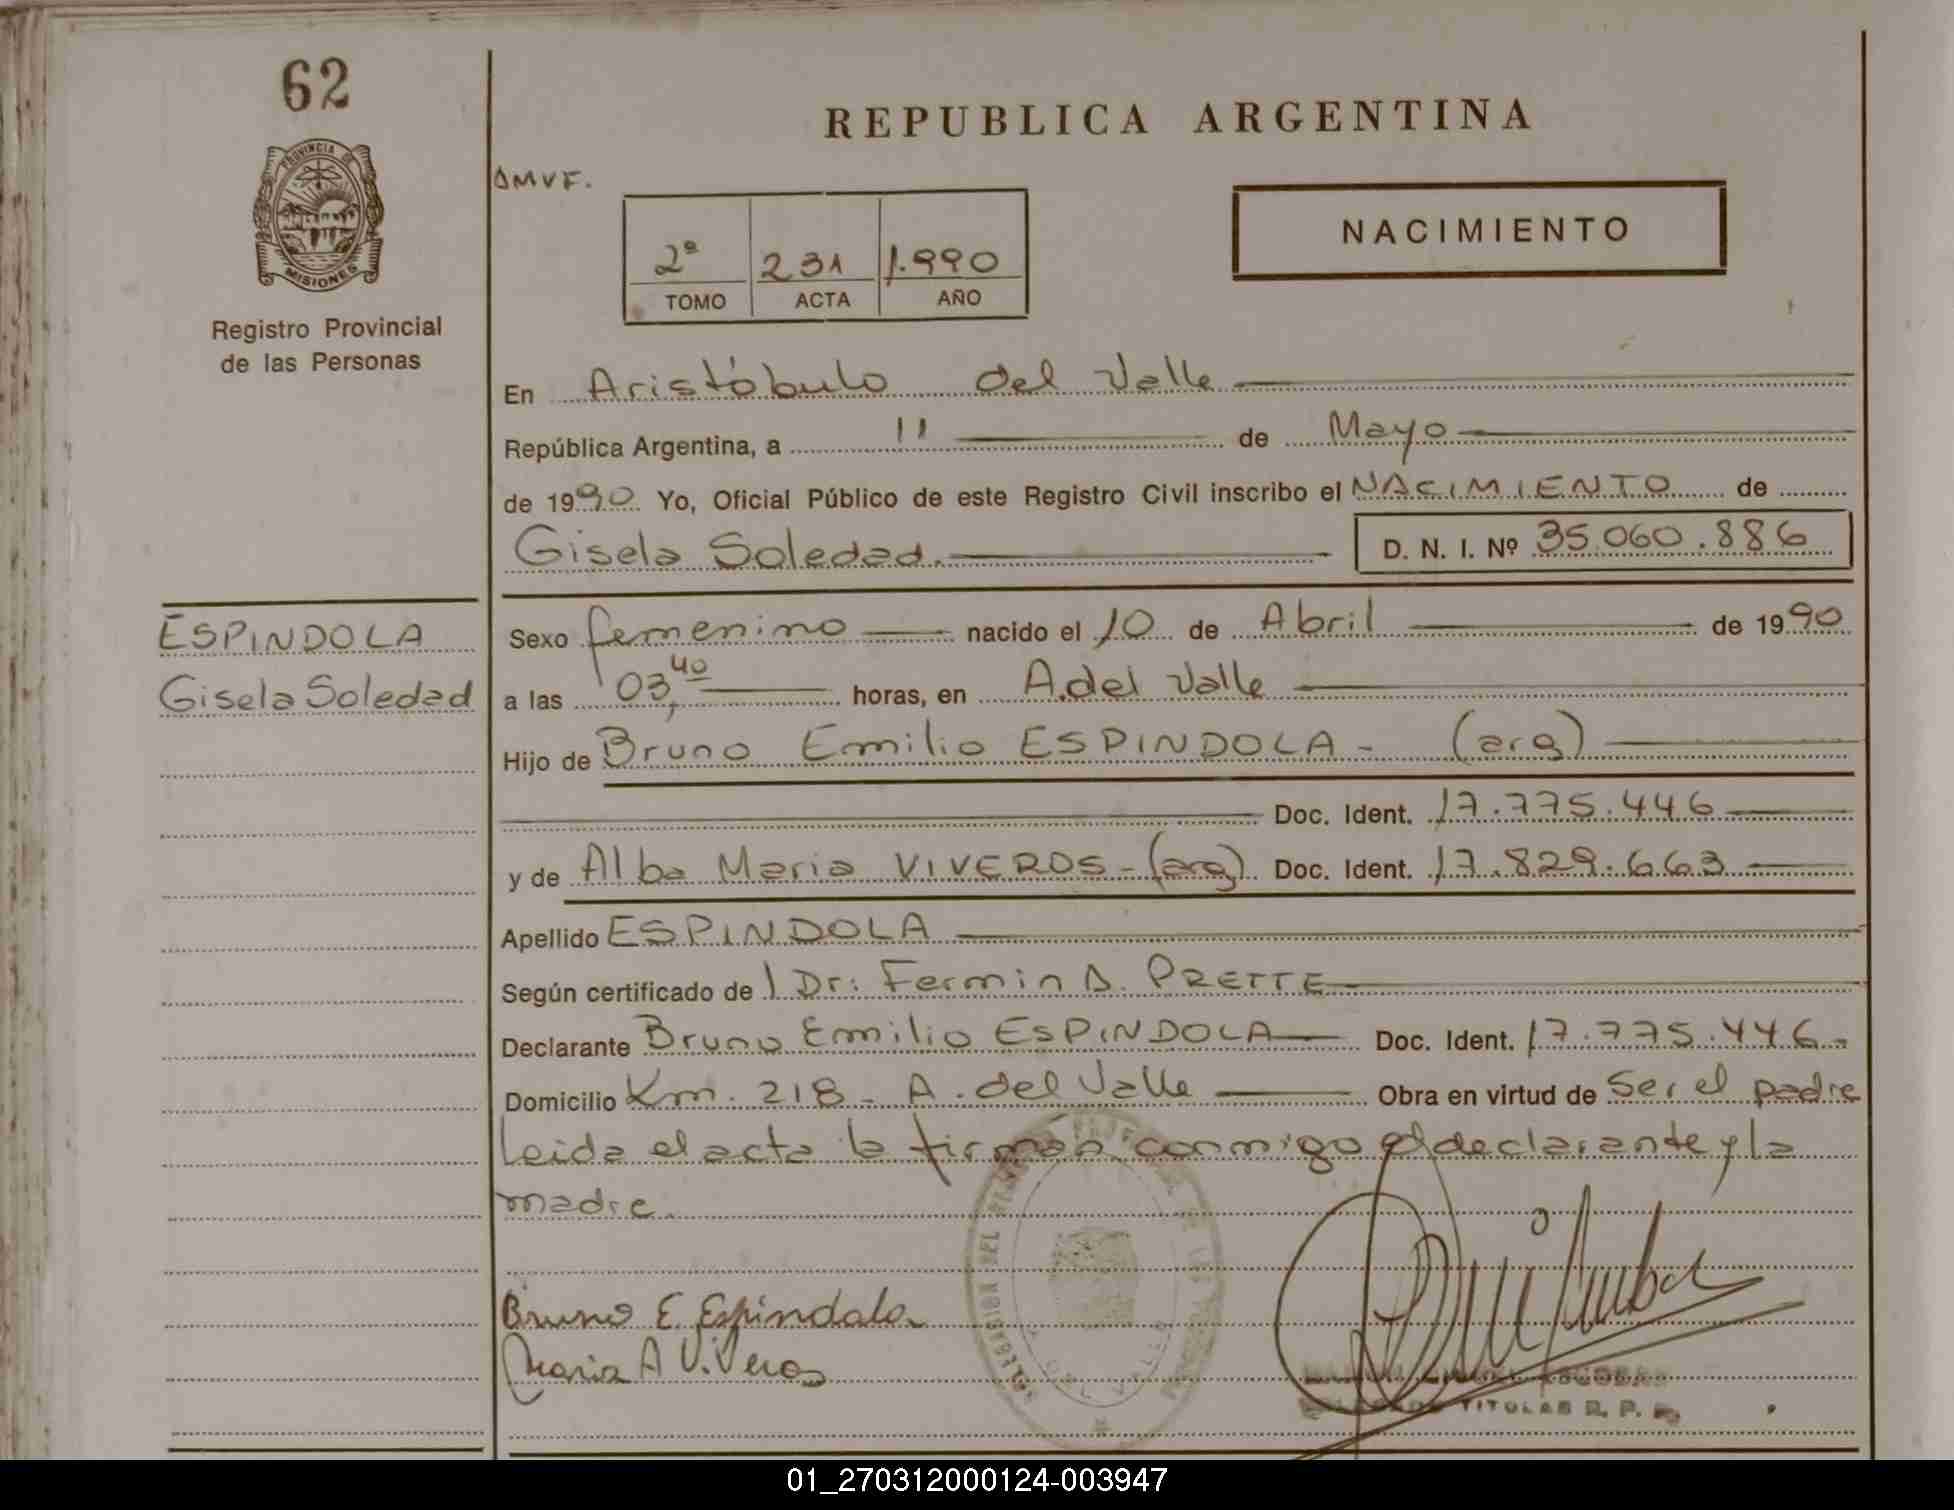 62
REPUBLICA ARGENTINA
PROVINCIA DE
MISIONES
Registro Provincial
de las Personas
2ª 231 1.990
TOMO ACTA AÑO
NACIMIENTO
En Aristóbulo del Valle
República Argentina, a 11 de Mayo
de 1990 Yo, Oficial Público de este Registro Civil inscribo el NACIMIENTO de
Gisela Soledad. D. N. I. Nº 35.060.886
ESPINDOLA
Gisela Soledad
Sexo femenino nacido el 10 de Abril de 1990
a las 03,40 horas, en A. del Valle
Hijo de Bruno Emilio ESPINDOLA - (arg)
Doc. Ident. 17.775.446
y de Alba Maria VIVEROS - (arg) Doc. Ident. 17.829.663
Apellido ESPINDOLA
Según certificado de l Dr: Fermin A. PRETTE
Declarante Bruno Emilio ESPINDOLA Doc. Ident. 17.775.446.
Domicilio Km. 218 - A. del Valle Obra en virtud de Ser el padre
Leida el acta la firman conmigo el declarante y la
madre.
Bruno E. Espindola
Maria A Viveros
ESCOBAR
TITULAR R. P.
01_270312000124-003947